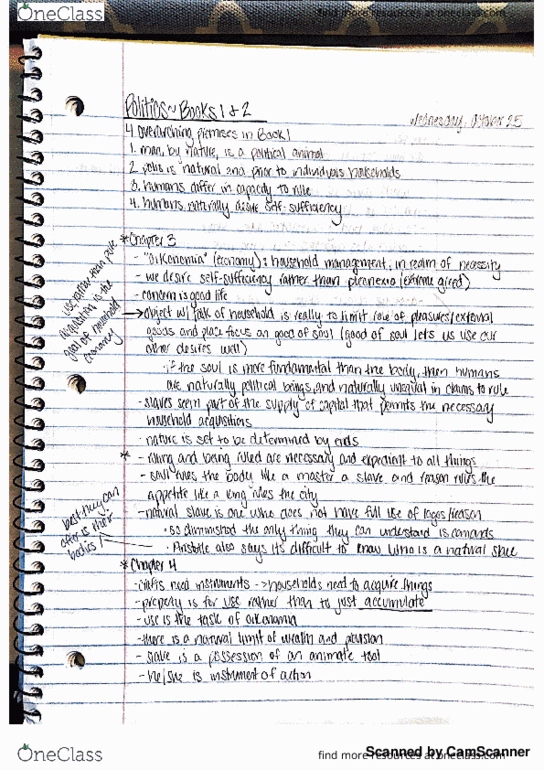 OneClass
find more resources at oneclass.com
Politics ~ Books 1 + 2
Wednesday, October 25
4 overarching premises in Book 1
1. man, by nature, is a political animal
2. polis is natural and prior to individuals households
3. humans differ in capacity to rule
4. humans naturally desire self-sufficiency
* Chapter 3
- "oikonomia" (economy): household management, in realm of necessity
- we desire self-sufficiency rather than pleonexia (extreme greed)
- concern is good life
→ object w/ talk of household is really to limit role of pleasures/external
goods and place focus on good of soul (good of soul lets us use our
other desires well)
use rather than
is the
goal of
economy
· if the soul is more fundamental than the body, then humans
are naturally political beings, and naturally unequal in claims to rule
- slaves seem part of the supply of capital that permits the necessary
household acquisitions
- nature is set to be determined by ends
* - ruling and being ruled are necessary and expedient to all things
- soul rules the body like a master a slave and reason rules the
appetite like a king rules the city
- natural slave is one who does not have full use of logos/reason
· so diminished the only thing they can understand is comands
· Aristotle also says its difficult to know who is a natural slave
best they can
offer is their
bodies
* Chapter 4
- crafts need instruments -> households need to acquire things
- property is for use rather than to just accumulate
- use is the task of oikonomia
- there is a natural limit of wealth and provision
- slave is a possession of an animate tool
- he/she is instrument of action
OneClass
find more resources at oneclass.com
Scanned by CamScanner